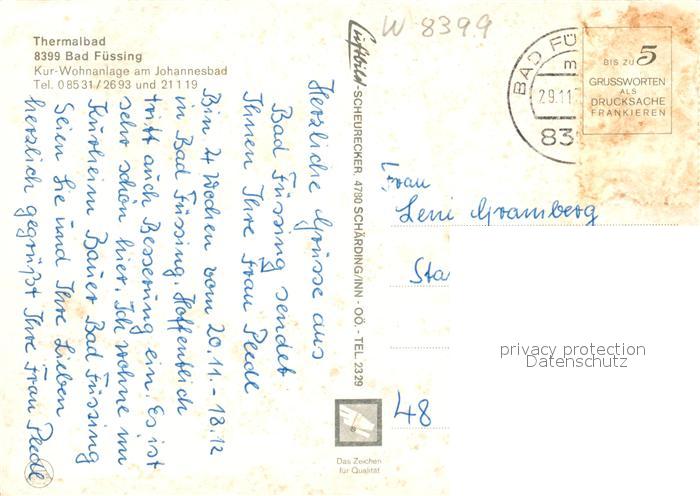 W 8399
Thermalbad
8399 Bad Füssing
Kur-Wohnanlage am Johannesbad
Tel. 08531/2693 und 21119
Herzliche Grüsse aus
Bad Füssing sendet
Ihnen Ihre Frau Peede
Bin 4 Wochen vom 20.11.-18.12
in Bad Füssing. Hoffentlich
tritt auch Besserung ein. Es ist
sehr schön hier. Ich wohne im
Kurheim Bauer Bad Füssing
Seien Sie und Ihre Lieben
herzlich gegrüßt Ihre Frau Peede
Luftbild-SCHEURECKER, 4780 SCHÄRDING/INN - OÖ. - TEL. 2329
Das Zeichen
für Qualität
BAD FÜ
m
29.11.
839
BIS ZU 5
GRUSSWORTEN
ALS
DRUCKSACHE
FRANKIEREN
Frau
Leni Gramberg
Sta
48
privacy protection
Datenschutz